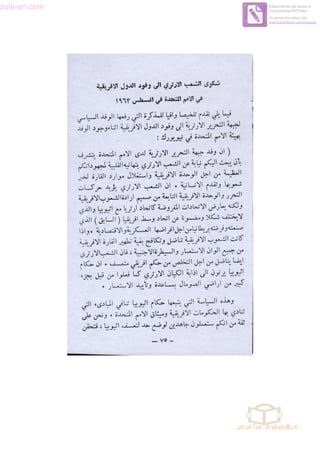 zula-eri.com
شكوى الشعب الارتري الى وفود الدول الافريقية
في الامم المتحدة في اغسطس ١٩٦٣
فيما يلي نقدم تلخيصا وافيا للمذكرة التي رفعها الوفد السياسي
لجبهة التحرير الارترية الى وفود الدول الافريقية اثناء وجود الوفد
بهيئة الامم المتحدة في نيويورك :
( ان وفد جبهة التحرير الارترية لدى الامم المتحدة يتشرف
بأن يبعث اليكم نيابة عن الشعب الارتري بتهانيه القلبية لمجهوداتكم
العظيمة من اجل الوحدة الافريقية واستغلال موارد القارة لخير
شعوبها وتقدم الانسانية ٠ ان الشعب الارتري يؤيد حركات
التحرر والوحدة الافريقية النابعة من صميم ارادة الشعوب الافريقية
ولكنه يعارض الاتحادات المفروضة كاتحاد ارتريا مع اثيوبيا والذي
لا يختلف شكلا ومضمونا عن اتحاد وسط افريقيا ( السابق ) الذي
صنعته وفرضته بريطانيا من اجل اغراضها العسكرية والاقتصادية ٠ واذا
كانت الشعوب الافريقية تناضل وتكافح بغية تطهير القارة الافريقية
من جميع الوان الاستعمار والسيطرة الاجنبية ، فان الشعب الارتري
ايضا يناضل من اجل التخلص من حكم افريقي متعسف ٠ ان حكام
اثيوبيا يرنون الى اذابة الكيان الارتري كما فعلوا من قبل بجزء
كبير من اراضي الصومال بمساعدة وتأييد الاستعمار ٠
وهذه السياسة التي يتبعها حكام اثيوبيا تنافي المبادىء التي
تنادي بها الحكومات الافريقية وميثاق الامم المتحدة ٠ ونحن على
ثقة من انكم ستعملون جاهدين لوضع حد لتعسف اثيوبيا ، فنحن
— ٧٥ —
zula books